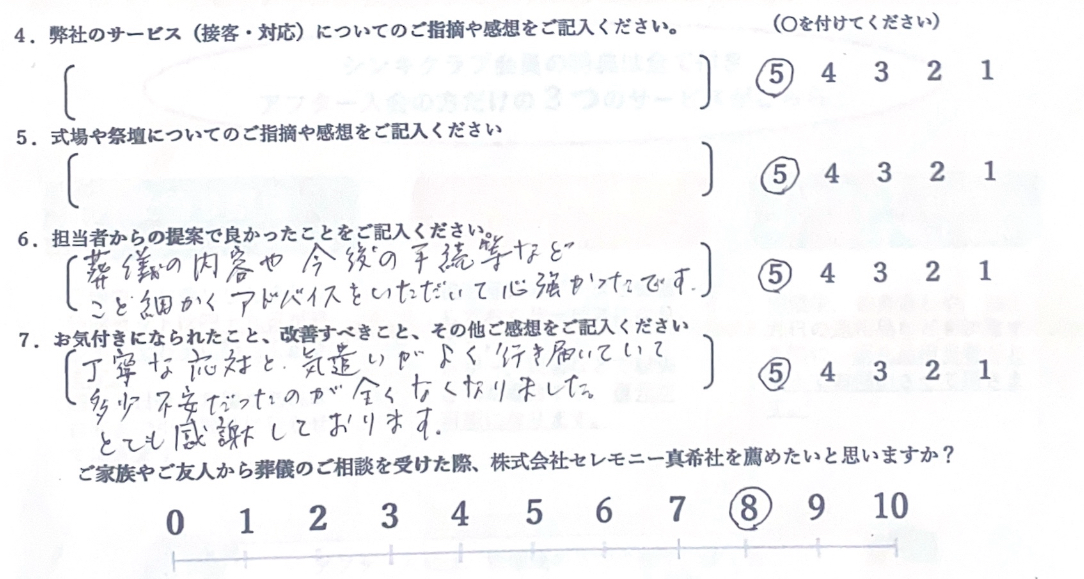 4．弊社のサービス（接客・対応）についてのご指摘や感想をご記入ください。　（〇を付けてください）
5　4　3　2　1
5．式場や祭壇についてのご指摘や感想をご記入ください
5　4　3　2　1
6．担当者からの提案で良かったことをご記入ください。
葬儀の内容や今後の手続等など
こと細かくアドバイスをいただいて心強かったです。
5　4　3　2　1
7．お気付きになられたこと、改善すべきこと、その他ご感想をご記入ください
丁寧な応対と、気遣いがよく行き届いていて
多少不安だったのが全くなくなりました。
とても感謝しております。
5　4　3　2　1
ご家族やご友人から葬儀のご相談を受けた際、株式会社セレモニー真希社を薦めたいと思いますか？
0　1　2　3　4　5　6　7　8　9　10